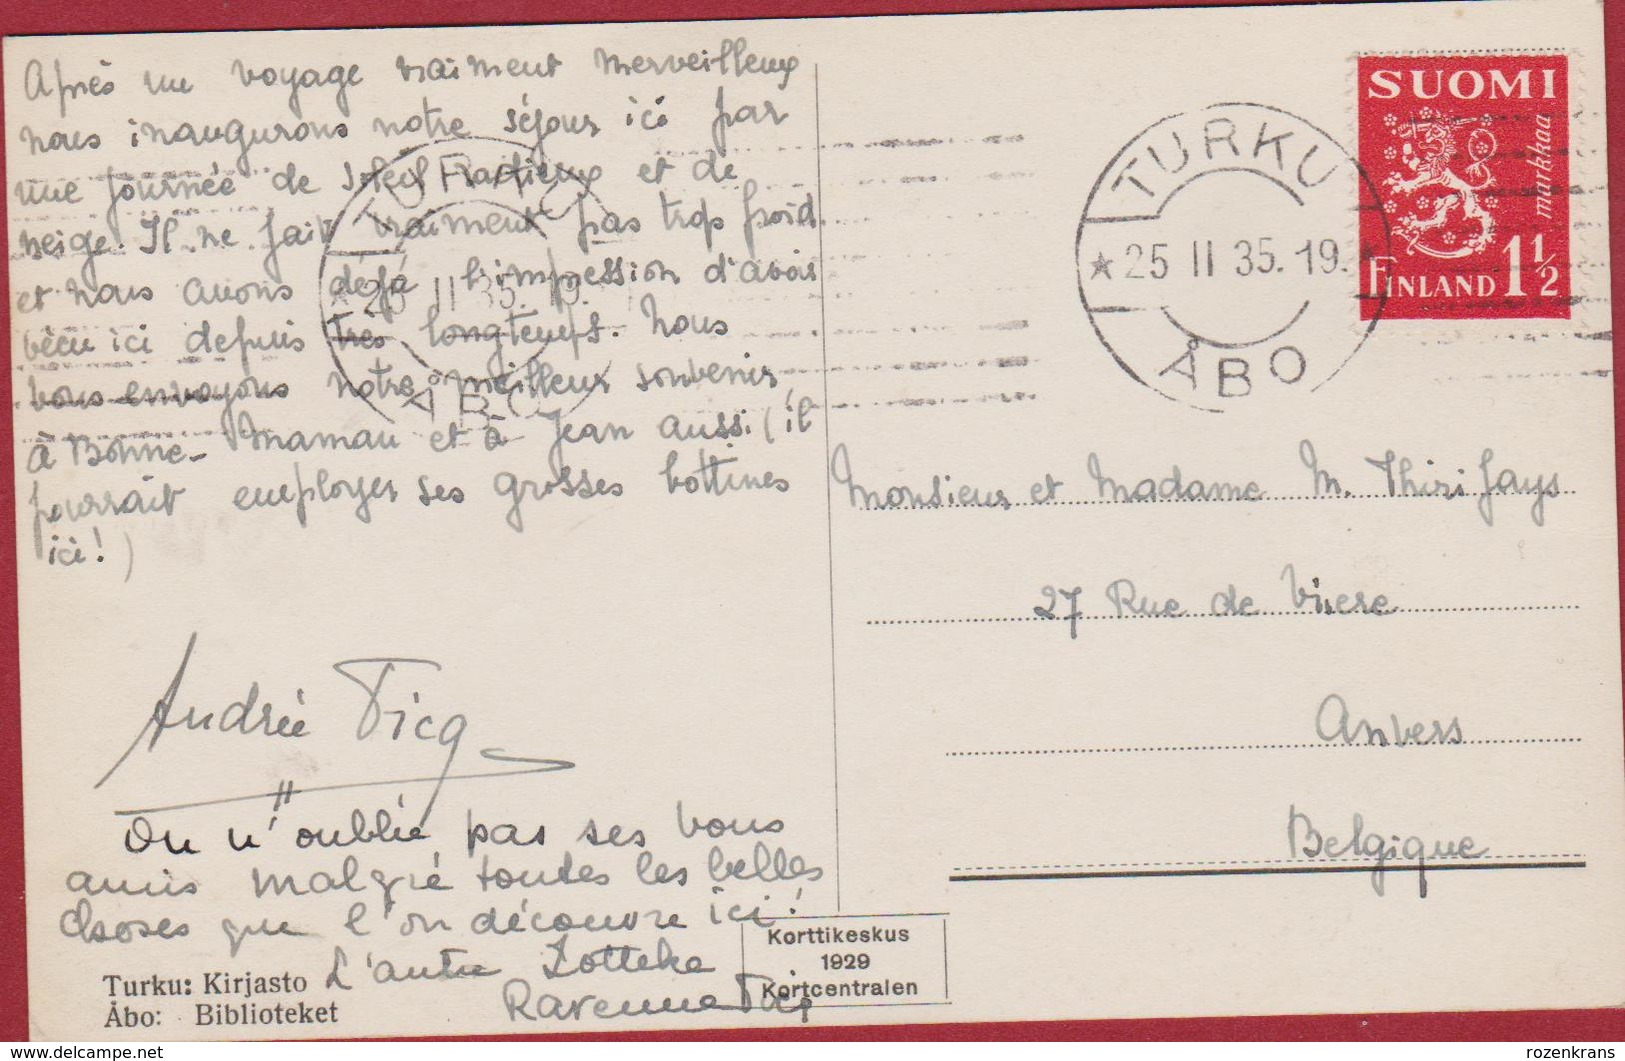 Après un voyage vraiment merveilleux
nous inaugurons notre séjour ici par
une journée de soleil radieux et de
neige. Il ne fait vraiment pas trop froid
et nous avons déjà l'impression d'avoir
vécu ici depuis très longtemps. Nous
vous envoyons notre meilleur souvenir
à Bonne-Maman et à Jean aussi (il
pourrait employer ses grosses bottines
ici!)
Andrée Ficq
On n'oublie pas ses bons
amis malgré toutes les belles
choses que l'on découvre ici!
L'autre Zotteke
Ravenne Ficq
Turku: Kirjasto
Åbo: Biblioteket
Korttikeskus
1929
Kortcentralen
TURKU
25 II 35. 19.
ÅBO
TURKU
* 25 II 35. 19. *
ÅBO
SUOMI
markkaa
FINLAND 1½
Monsieur et Madame M. Thiri Jays
27 Rue de
Anvers
Belgique
delcampe.net
rozenkrans